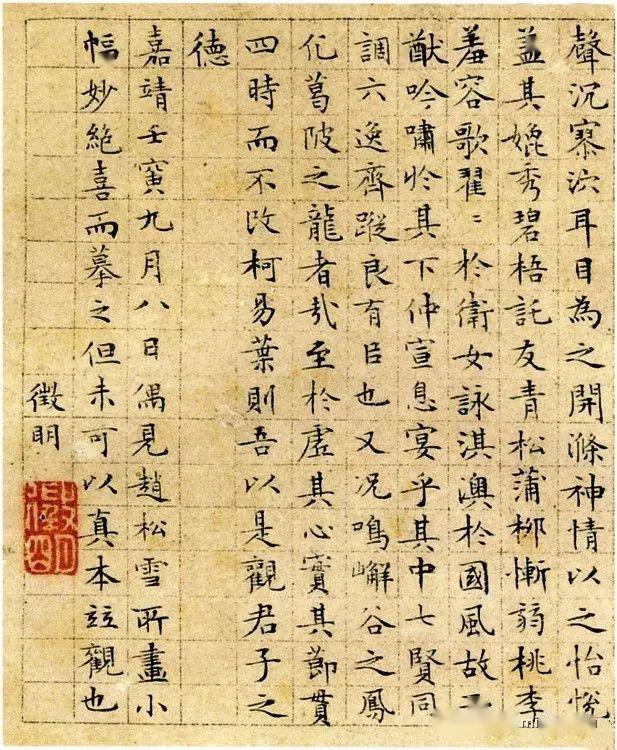 聲沉寥泬耳目為之開滌神情以之怡悅
蓋其媲秀碧梧託友青松蒲柳慚弱桃李
羞容歌翟〻於衛女詠淇澳於國風故子
猷吟嘯於其下仲宣息宴乎其中七賢同
調六逸齊蹤良有㠯也又况鳴嶰谷之鳳
化葛陂之龍者哉至於虛其心實其節貫
四時而不改柯易葉則吾以是觀君子之
德
嘉靖壬寅九月八日偶見趙松雪所畫小
幅妙絶喜而摹之但未可以真本竝觀也
徵明